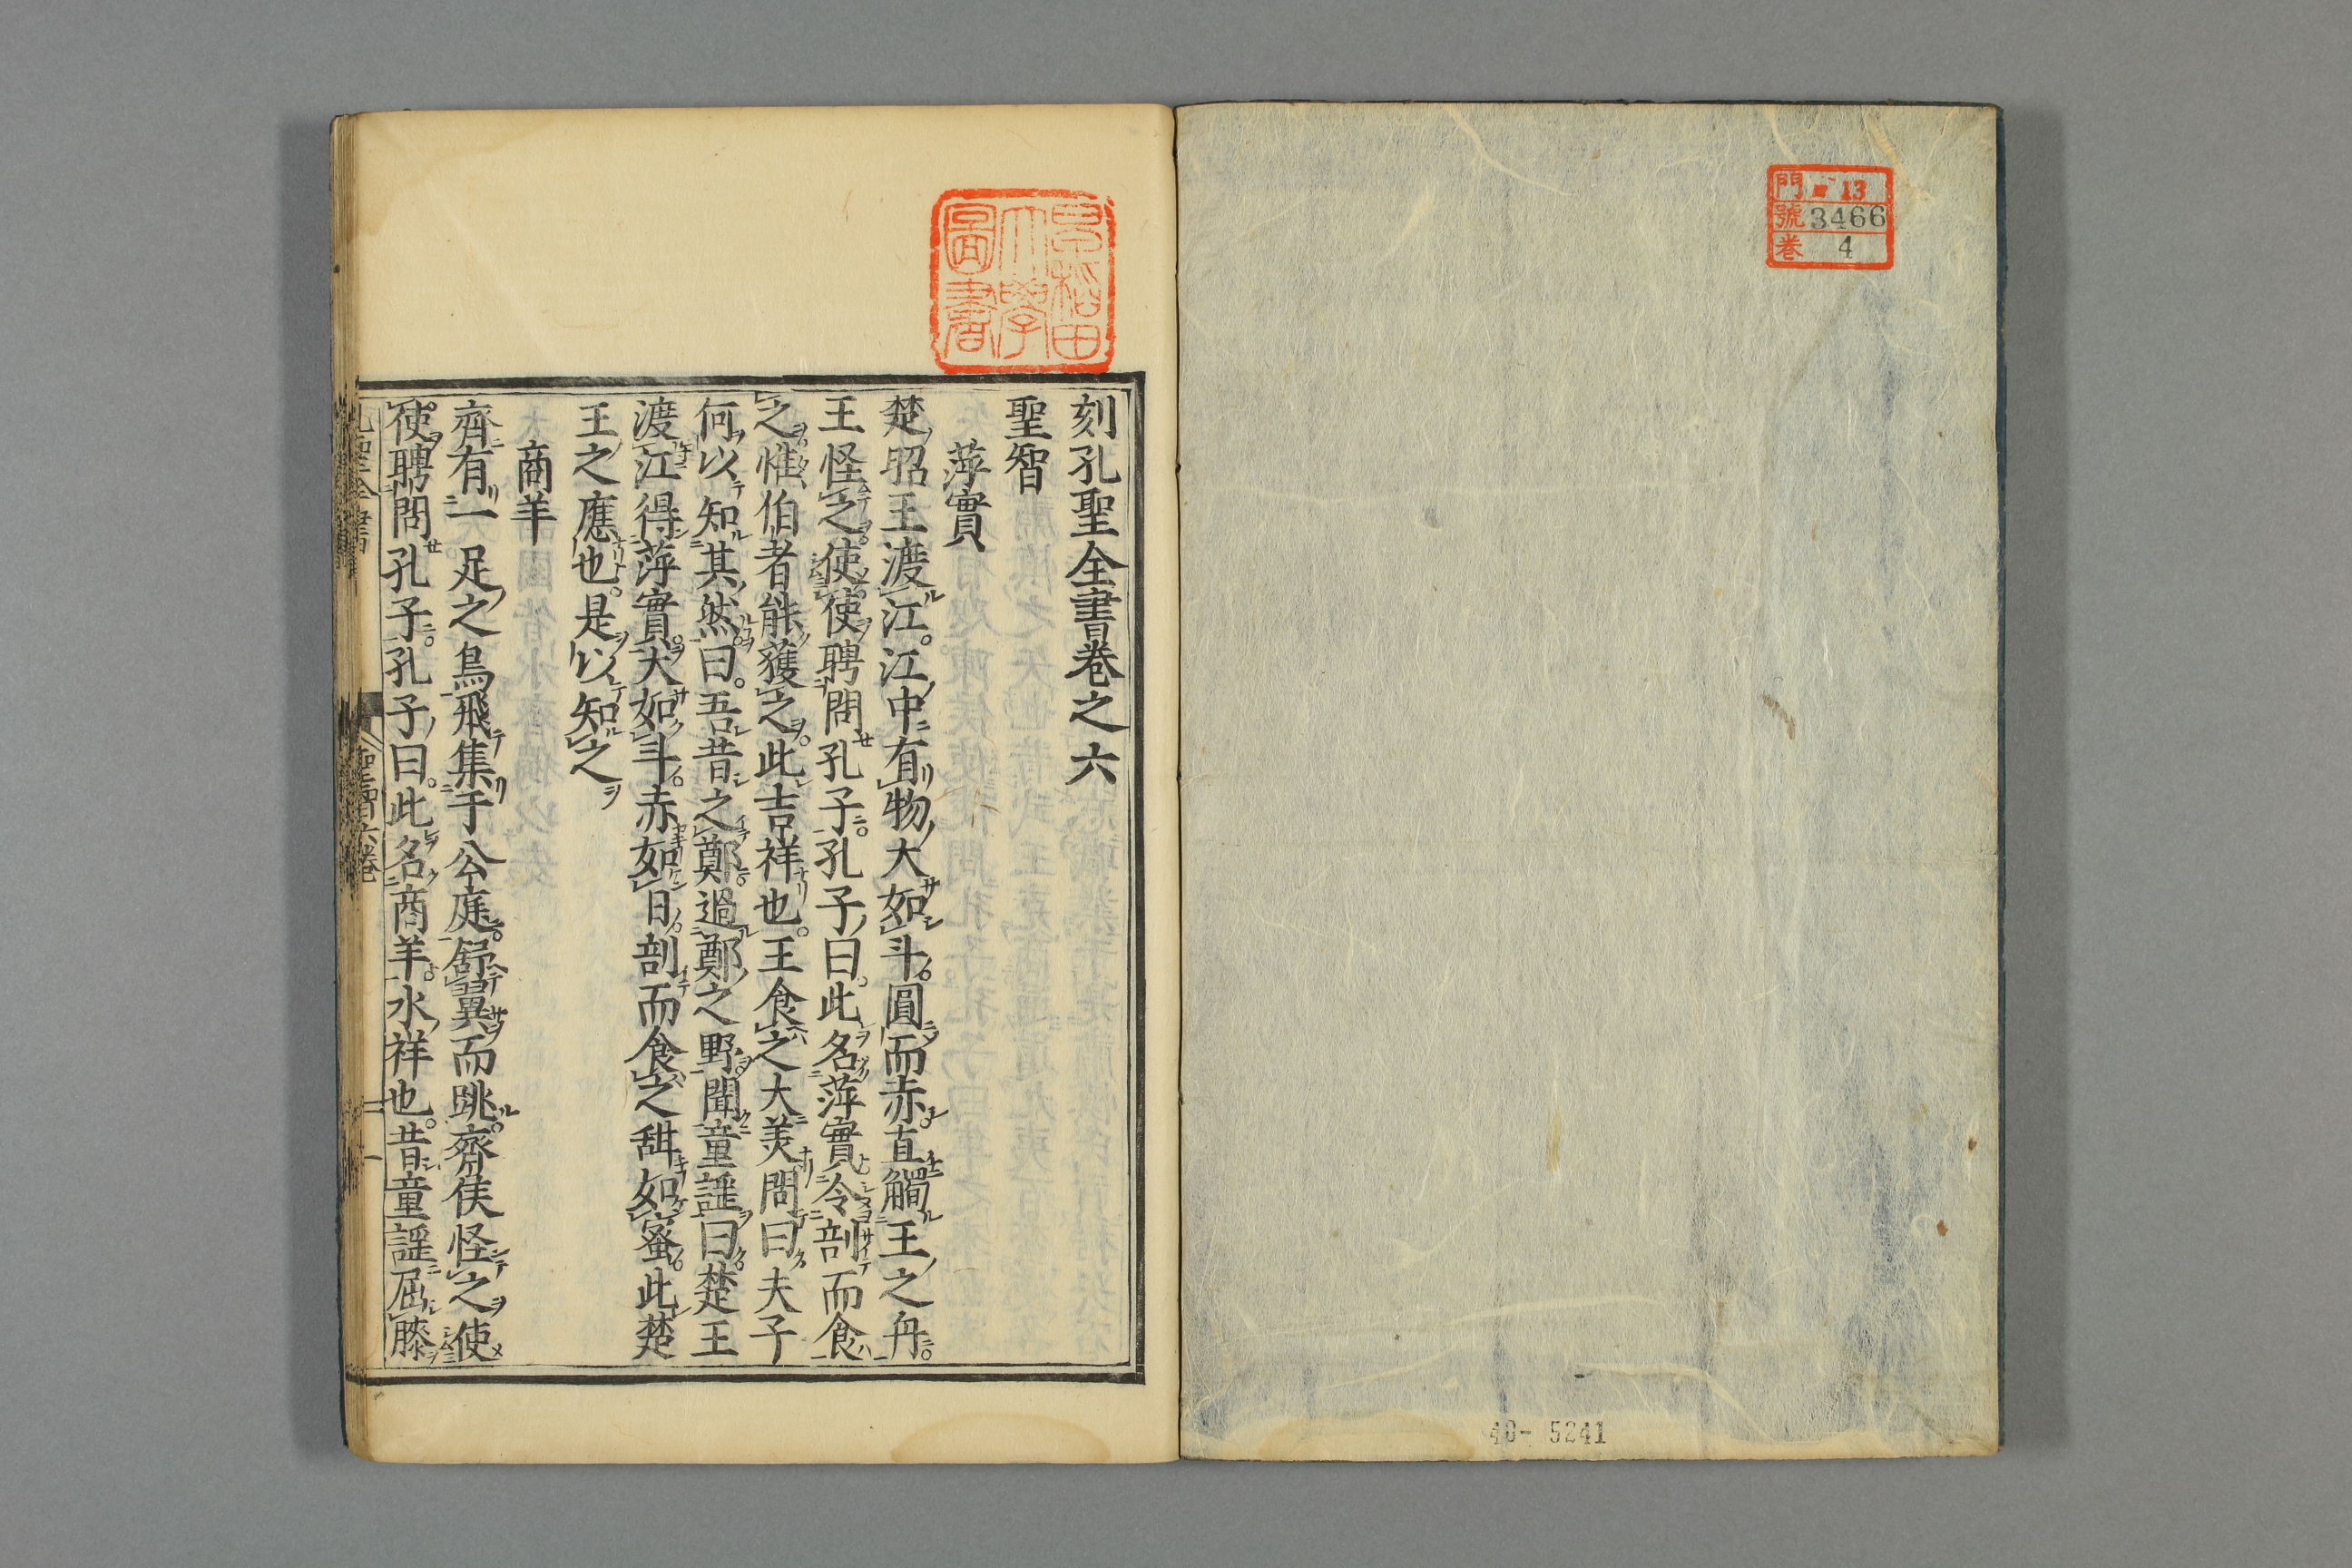 門 13
號 3466
卷 4
40- 5241
早稻田
大學
圖書
刻孔聖全書卷之六
聖智
萍實
楚昭王渡江。江中有物大如斗。圓而赤直觸王之舟。
王怪之。使使聘問孔子。孔子曰。此名萍實令剖而食
之。惟伯者能獲之。此吉祥也。王食之大美問曰夫子
何以知其然。曰。吾昔之鄭。過鄭之野。聞童謠曰。楚王
渡江得萍實。大如斗。赤如日。剖而食之甜如蜜。此楚
王之應也。是以知之
商羊
齊有一足之鳥飛集于公庭。舒翼而跳。齊侯怪之使
使聘問孔子。孔子曰。此名商羊。水祥也。昔童謠屈膝
孔聖全書
聖智六卷
一